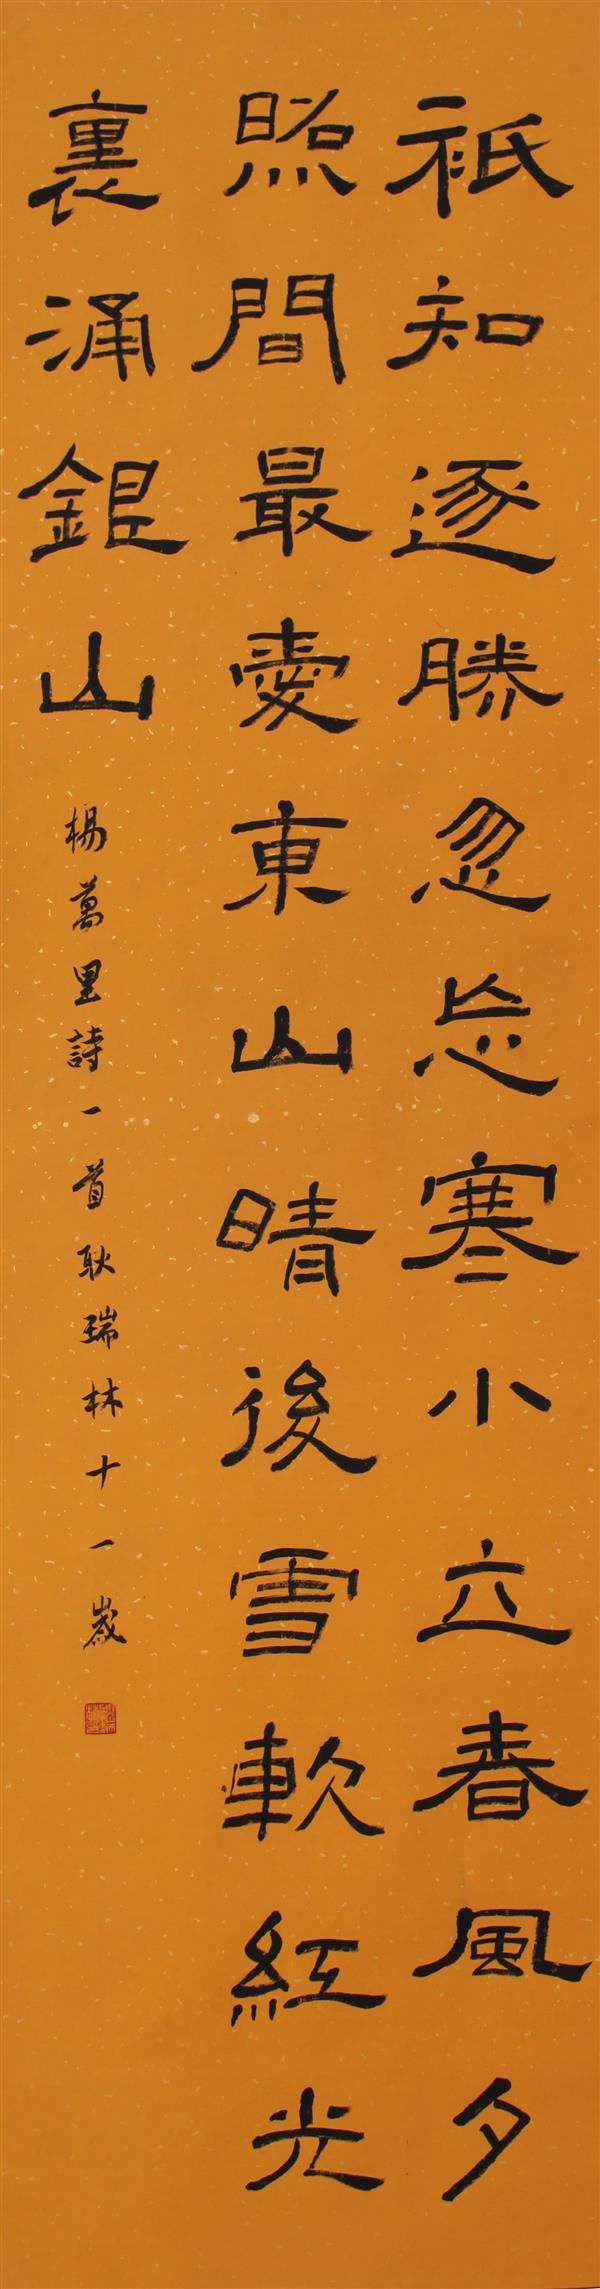 祇知逐勝忽忘寒小立春風夕
照間最愛東山晴後雪軟紅光
裏涌銀山
楊萬里詩一首耿瑞林十一歲